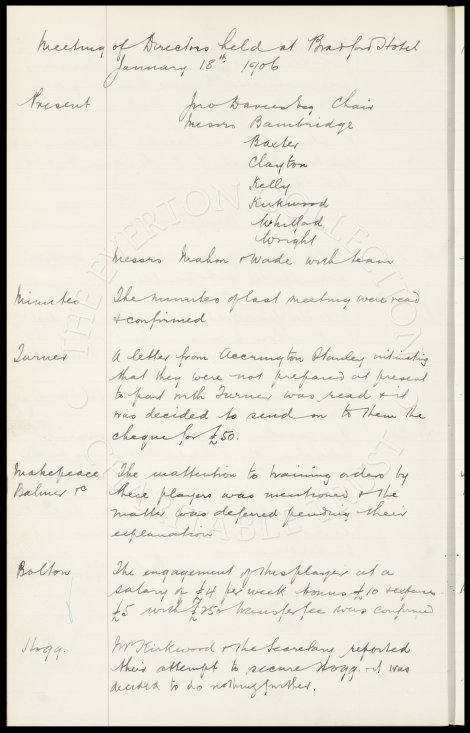 Meeting of Directors held at Bradford Hotel
January 18th 1906
Present Jno Davies Esq Chair
Messrs Bainbridge
Baxter
Clayton
Kelly
Kirkwood
Whitford
Wright
Messrs Mahon & Wade with team
Minutes The minutes of last meeting were read
& confirmed
Turner A letter from Accrington Stanley intimating
that they were not prepared at present
to part with Turner was read & it
was decided to send on to them the
cheque for £50.
Makepeace The inattention to training orders by
Balmer &c these players was mentioned & the
matter was deferred pending their
explanation
Bolton The engagement of this player at a
salary of £4 per week bonus £10 &
£5 with £250 transfer fee was confirmed
Hogg. Mr Kirkwood & the Secretary reported
their attempt to secure Hogg & it was
decided to do nothing further.
THE EVERTON COLLECTION
CHARITABLE TRUST